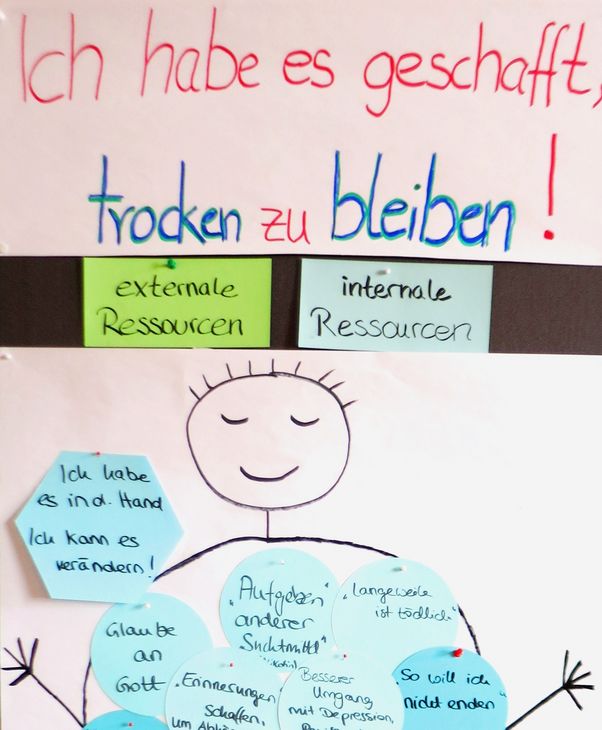 Ich habe es geschafft,
trocken zu bleiben!
externale
Ressourcen
internale
Ressourcen
Ich habe
es in d. Hand
Ich kann es
verändern!
"Aufgeben"
anderer
"Suchtmittel"
"Langeweile
ist tödlich"
Glaube
an
Gott
"Erinnerungen
schaffen,
Besserer
Umgang
mit Depression,
"So will ich
nicht enden"